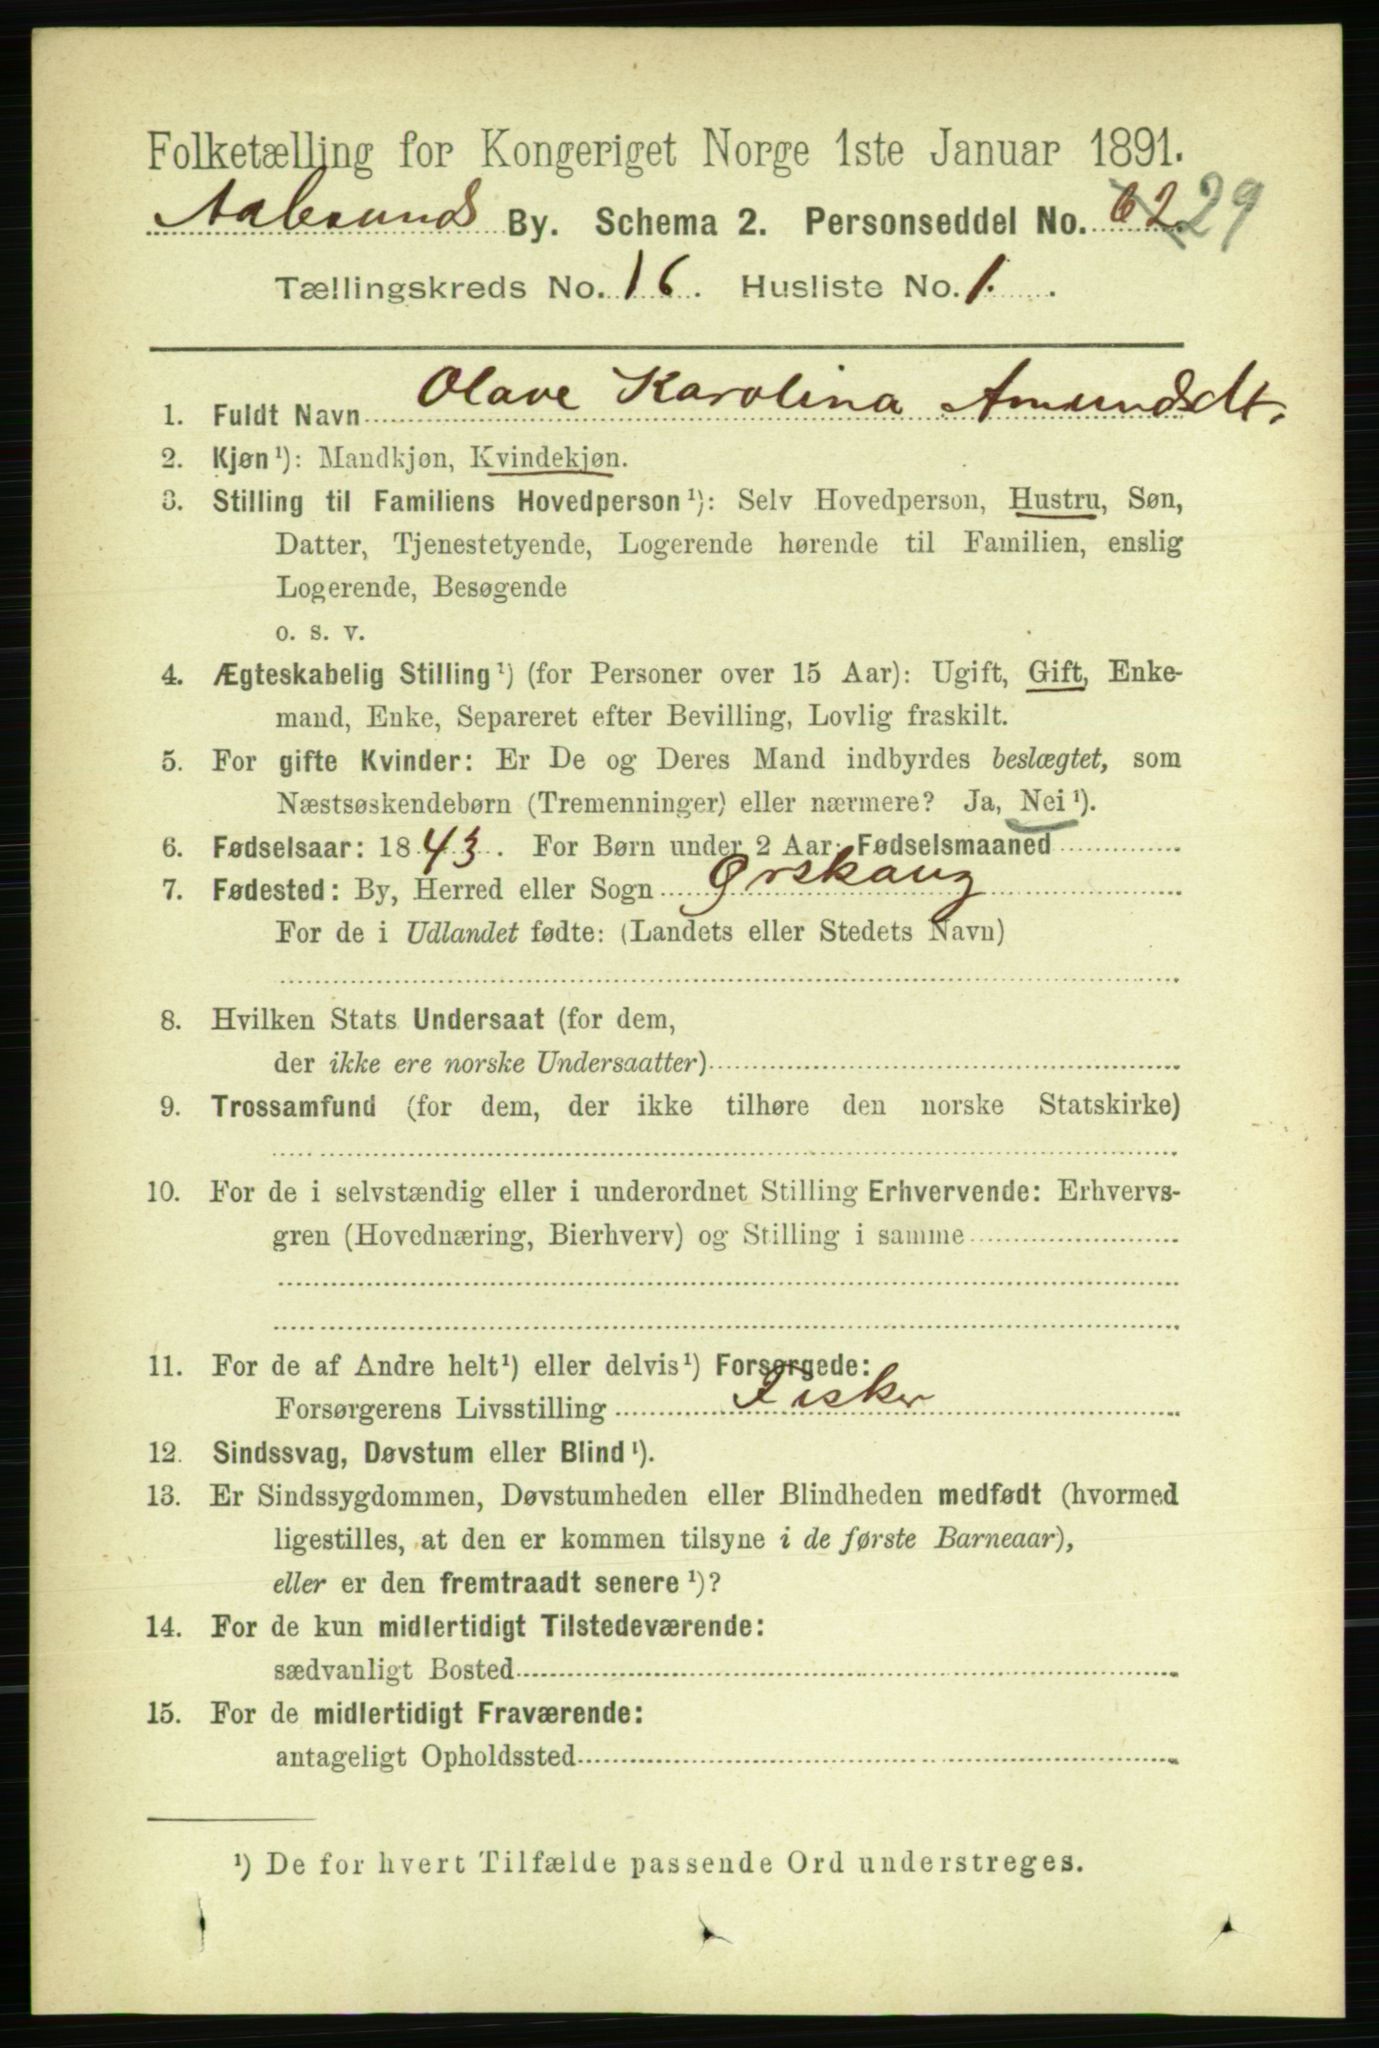 Folketælling for Kongeriget Norge 1ste Januar 1891.
Aalesunds By. Schema 2. Personseddel No. 62 29
Tællingskreds No. 16. Husliste No. 1.
1. Fuldt Navn Olave Karolina Amundsdt.
2. Kjøn¹): Mandkjøn, Kvindekjøn.
3. Stilling til Familiens Hovedperson¹): Selv Hovedperson, Hustru, Søn,
Datter, Tjenestetyende, Logerende hørende til Familien, enslig
Logerende, Besøgende
o. s. v.
4. Ægteskabelig Stilling¹) (for Personer over 15 Aar): Ugift, Gift, Enke-
mand, Enke, Separeret efter Bevilling, Lovlig fraskilt.
5. For gifte Kvinder: Er De og Deres Mand indbyrdes beslægtet, som
Næstsøskendebørn (Tremenninger) eller nærmere? Ja, Nei¹).
6. Fødselsaar: 1843. For Børn under 2 Aar: Fødselsmaaned
7. Fødested: By, Herred eller Sogn Ørskaug
For de i Udlandet fødte: (Landets eller Stedets Navn)
8. Hvilken Stats Undersaat (for dem,
der ikke ere norske Undersaatter)
9. Trossamfund (for dem, der ikke tilhøre den norske Statskirke)
10. For de i selvstændig eller i underordnet Stilling Erhvervende: Erhvervs-
gren (Hovednæring, Bierhverv) og Stilling i samme
11. For de af Andre helt¹) eller delvis¹) Forsørgede:
Forsørgerens Livsstilling Fisker
12. Sindssvag, Døvstum eller Blind¹).
13. Er Sindssygdommen, Døvstumheden eller Blindheden medfødt (hvormed
ligestilles, at den er kommen tilsyne i de første Barneaar),
eller er den fremtraadt senere¹)?
14. For de kun midlertidigt Tilstedeværende:
sædvanligt Bosted
15. For de midlertidigt Fraværende:
antageligt Opholdssted
¹) De for hvert Tilfælde passende Ord understreges.